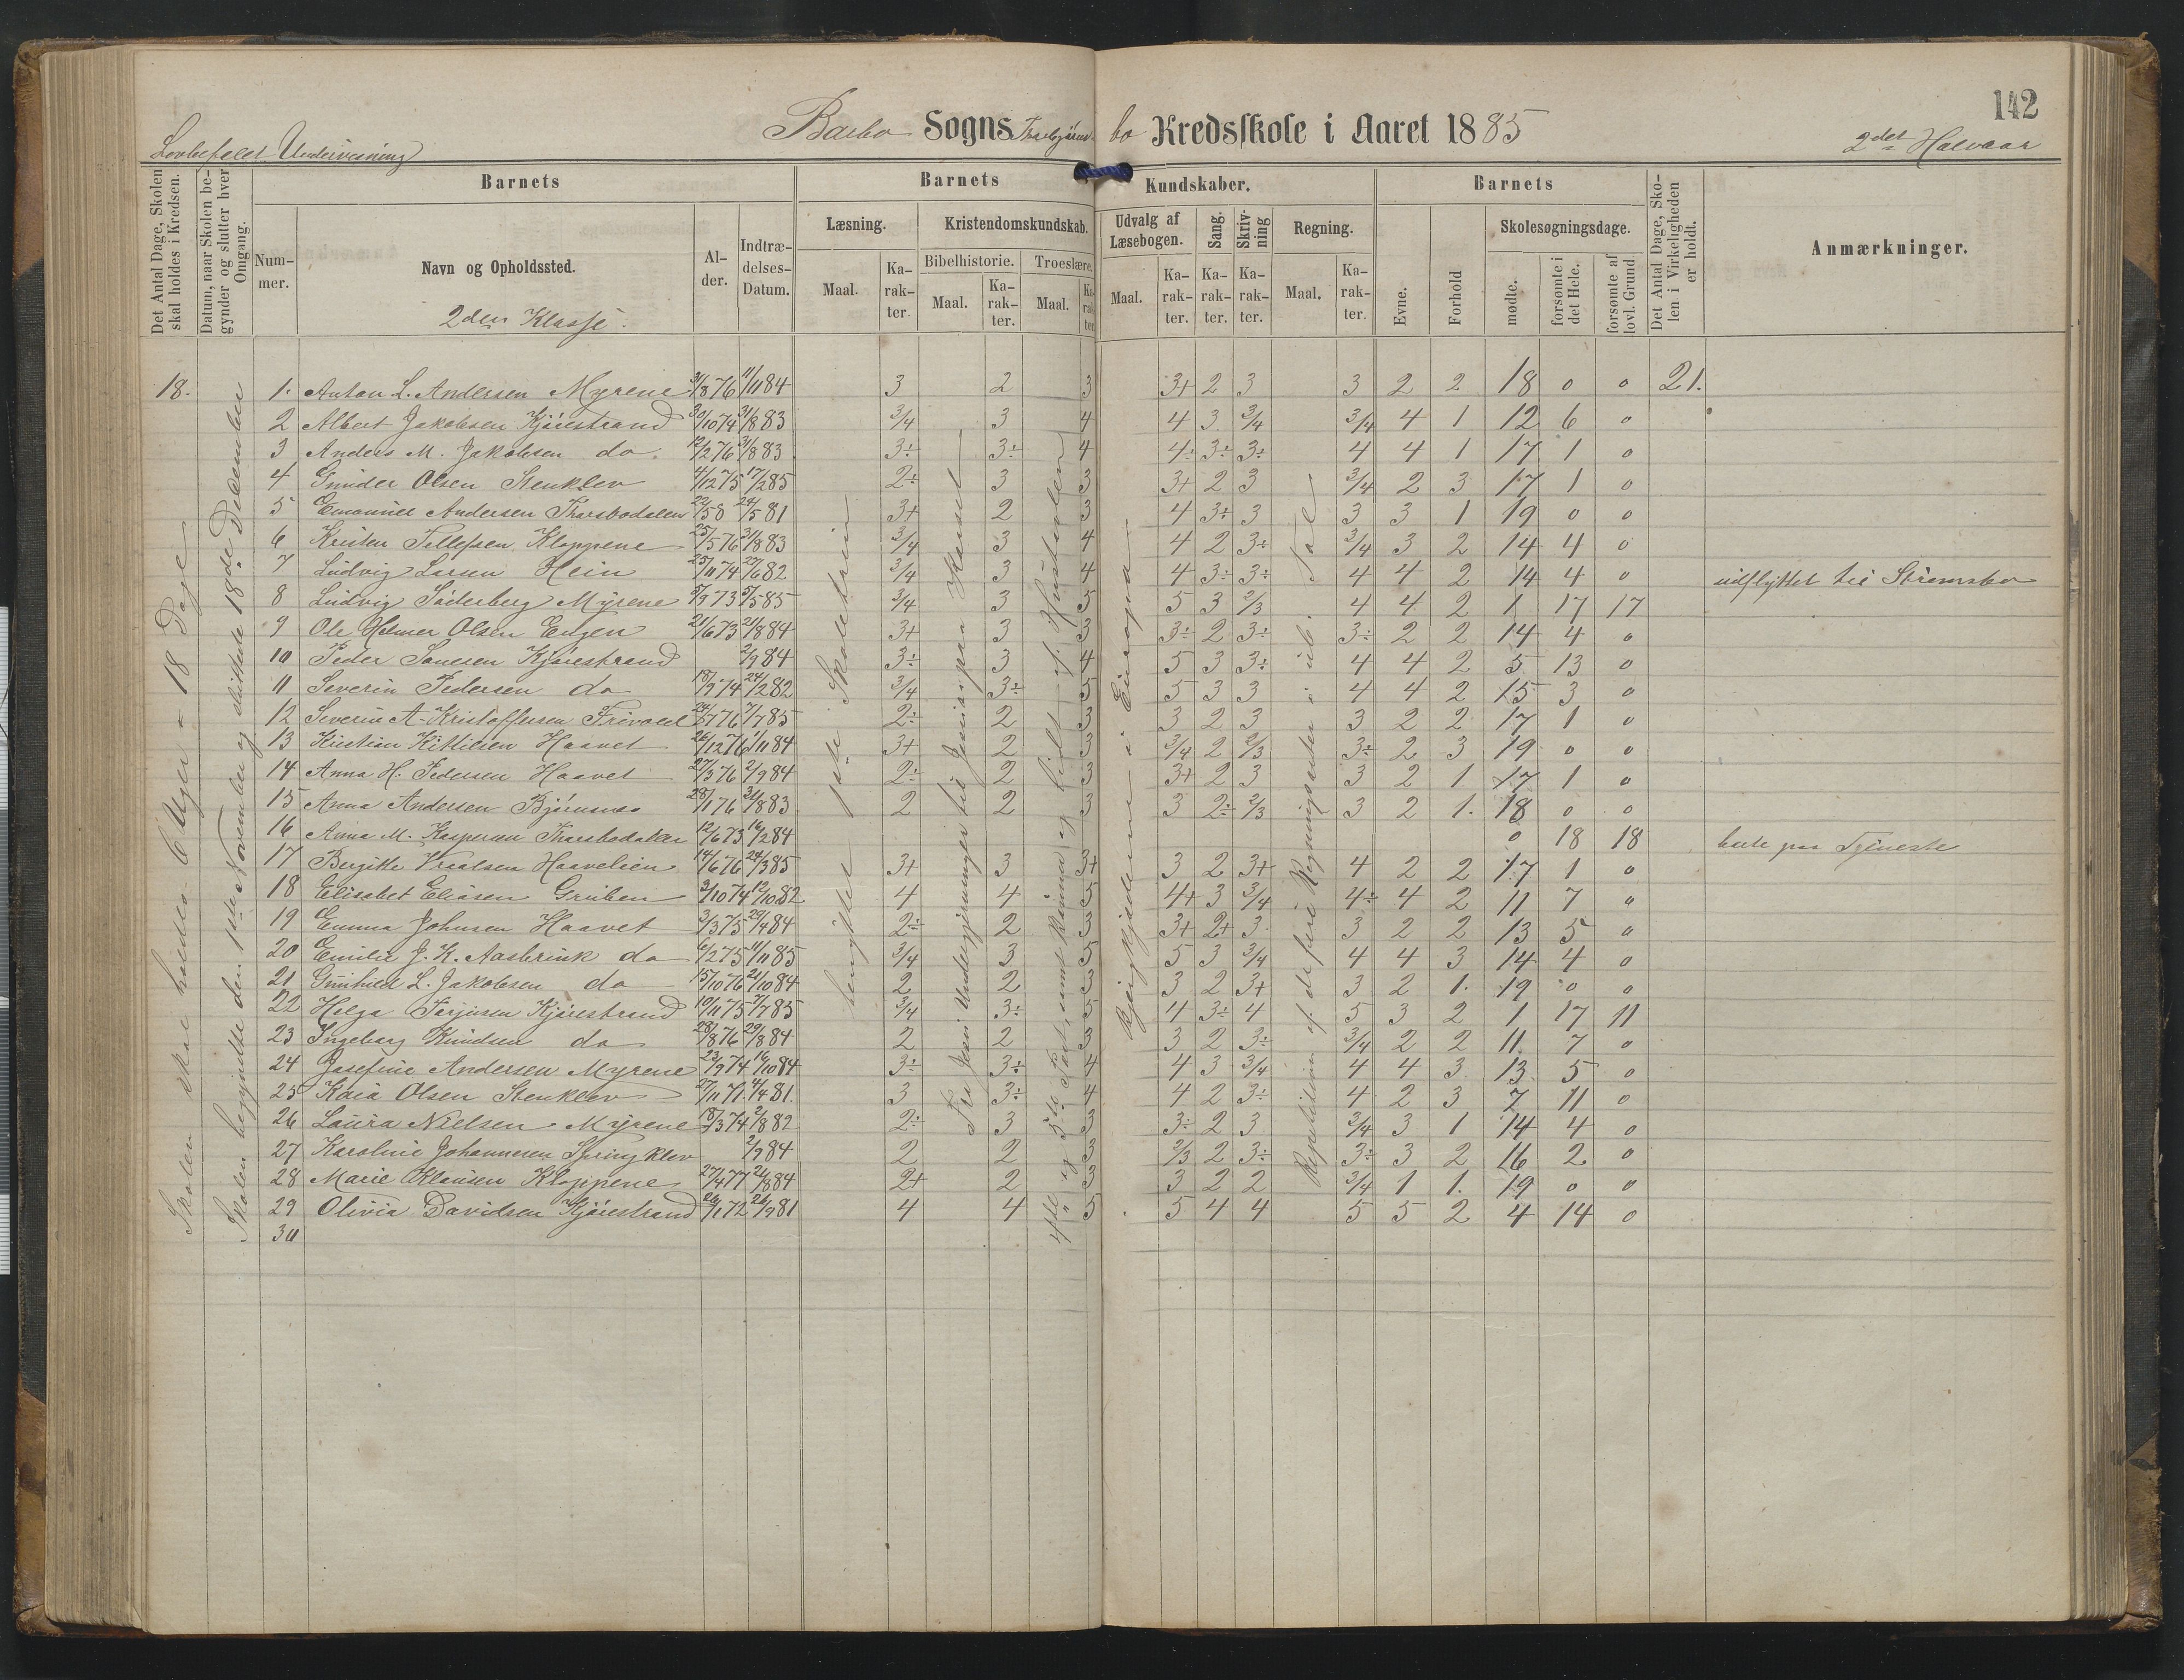 142
Barbo Sogns Thorbjørnsbo Kredsskole i Aaret 1885
Lovbefalet Undervisning 2det Halvaar
Det Antal Dage, Skolen skal holdes i Kredsen.
Datum, naar Skolen begynder og slutter hver Omgang.
Barnets
Nummer.
Navn og Opholdssted.
2den Klasse.
Alder.
Indtrædelses-Datum.
Barnets Kundskaber.
Læsning.
Maal.
Karakter.
Kristendomskundskab.
Bibelhistorie.
Maal.
Karakter.
Troeslære.
Maal.
Karakter
Udvalg af Læsebogen.
Maal.
Karakter.
Sang.
Karakter.
Skrivning
Karakter.
Regning.
Maal.
Karakter.
Barnets
Evne.
Forhold
Skolesøgningsdage.
mødte.
forsømte i det Hele.
forsømte af lovl. Grund.
Det Antal Dage, Skolen i Virkeligheden er holdt.
Anmærkninger.
Skolen skal holdes 6 Uger = 18 Dage
Skolen begyndte den 1ste November og sluttede 18de December
benyttet 1ste Skoletrin
Fra Jesu Undergjerninger til Jesus paa Korset
4de og 5te Part, samt Kvinder og lidt af Hustavlen
Bjergkjæderne i Europa
Repetition af de fire Regningsarter i ub. Tal
18. 1. Anton L. Andersen Myrene 31/8 76 11/11 84 3 2 3 3+ 2 3 3 2 2 18 0 0 21.
2 Albert Jakobsen Kjørestrand 30/10 74 31/8 83 3/4 3 4 4 3 3/4 3/4 4 1 12 6 0
3 Anders M. Jakobsen do. 12/2 76 31/8 83 3÷ 3÷ 4 4÷ 3÷ 3÷ 4 4 1 17 1 0
4 Gunder Olsen Stenklev 4/12 75 17/2 85 2÷ 3 3 3+ 2 3 3/4 2 3 17 1 0
5 Emanuel Andersen Thorsbodalen 24/5 81 3+ 2 3 4 3÷ 3 3 3 1 19 0 0
6 Kristen Tellefsen Kloppene 25/5 76 31/8 83 3/4 3 4 4 2 3÷ 3/4 3 2 14 4 0
7 Ludvig Larsen Hein 25/11 74 29/6 82 3/4 3 4 4 3÷ 3÷ 4 4 2 14 4 0 udflyttet til Strømsbo
8 Ludvig Søderberg Myrene 5/9 73 5/5 85 3/4 3 5 5 3 2/3 4 4 2 1 17 17
9 Ole Helmer Olsen Engen 21/6 73 21/8 84 3+ 3 3 3÷ 2 3÷ 3÷ 2 2 14 4 0
10 Peder Sonesen Kjørestrand 2/9 84 3÷ 3 4 5 3 3÷ 4 4 2 5 13 0
11 Severin Pedersen do 18/9 74 24/2 82 3/4 3÷ 5 5 3 3 4 4 2 15 3 0
12 Severin A. Kristoffersen Frivold 24/7 76 7/7 85 2÷ 2 3 3 2 3 3 2 2 17 1 0
13 Kristian Kittilsen Haavet 26/12 76 1/11 84 3+ 2 3 3/4 2 2/3 3÷ 2 3 19 0 0
14 Anna H. Pedersen Haavet 27/3 76 2/9 84 2÷ 2 3 3+ 2 3 3 2 1 17 1 0
15 Anna Andersen Bjørnsnes 28/1 76 31/8 83 2 2 3 3 2÷ 2/3 3 2 1. 18 0 0
16 Anna M. Kaspersen Thorsbodakken 12/6 73 16/2 84 0 18 18 borte paa Tjeneste
17 Bergitte Vraalsen Haavelien 14/6 76 24/3 85 3+ 3 3+ 3 2 3+ 4 2 2 17 1 0
18 Elisabet Eliasen Gruben 3/10 74 12/10 82 4 4 5 4+ 3 3/4 4÷ 4 2 11 7 0
19 Emma Johnsen Haavet 3/3 75 29/4 84 2÷ 2 3 3+ 2+ 3 3 2 2 13 5 0
20 Emilie J. K. Aasbrink do 6/2 75 11/11 85 3/4 3 5 5 3 3/4 4 4 3 14 4 0
21 Gunhild L. Jakobsen do 15/10 76 21/10 84 2 2 3 3 2 3+ 3 2 1. 19 0 0
22 Helga Terjesen Kjørestrand 10/11 75 7/7 85 3/4 3÷ 5 4 3÷ 4 5 3 2 1 17 11
23 Ingeborg Knudsen do 28/8 76 29/8 84 2 2 3 3 2 3÷ 3/4 2 2 11 7 0
24 Josefine Andersen Myrene 23/9 74 16/10 84 3÷ 3÷ 4 4 3 3/4 4 4 3 13 5 0
25 Kaia Olsen Stenklev 27/11 71 4/4 81 3 3÷ 4 4 2 3÷ 4 2 3 7 11 0
26 Laura Nielsen Myrene 18/3 74 2/8 82 2÷ 3 3 3÷ 2 3 3/4 3 1 14 4 0
27 Karoline Johannesen Springklev 2/9 84 2 2 3 2/3 2 3÷ 3÷ 3 2 16 2 0
28 Marie Klausen Kloppene 27/4 77 21/8 84 2+ 2 3 3 2 2 3/4 1 1. 19 0 0
29 Olivia Davidsen Kjørestrand 26/1 72 26/9 81 4 4 5 5 4 4 5 5 2 4 14 0
30